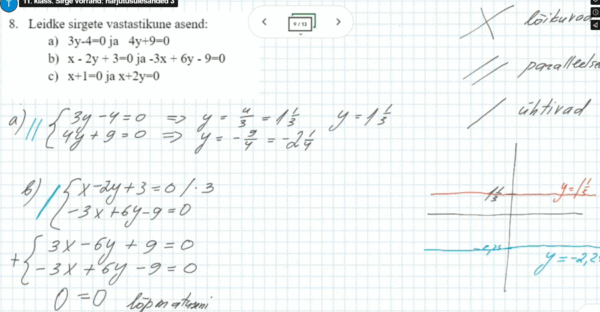 11. klass. Sirge võrrand. Harjutusülesanded 3
8. Leidke sirgete vastastikune asend:
a) 3y-4=0 ja 4y+9=0
b) x - 2y + 3=0 ja -3x + 6y - 9=0
c) x+1=0 ja x+2y=0
9 / 13
lõikuvad
paralleelse
ühtivad
a) // { 3y - 4 = 0 => y = 4/3 = 1 1/3 y = 1 1/3
4y + 9 = 0 => y = -9/4 = -2 1/4
b) / { x - 2y + 3 = 0 / · 3
-3x + 6y - 9 = 0
+ { 3x - 6y + 9 = 0
-3x + 6y - 9 = 0
0 = 0 lõpmatuseni
1 1/3 y = 1 1/3
-2,25
y = -2,2